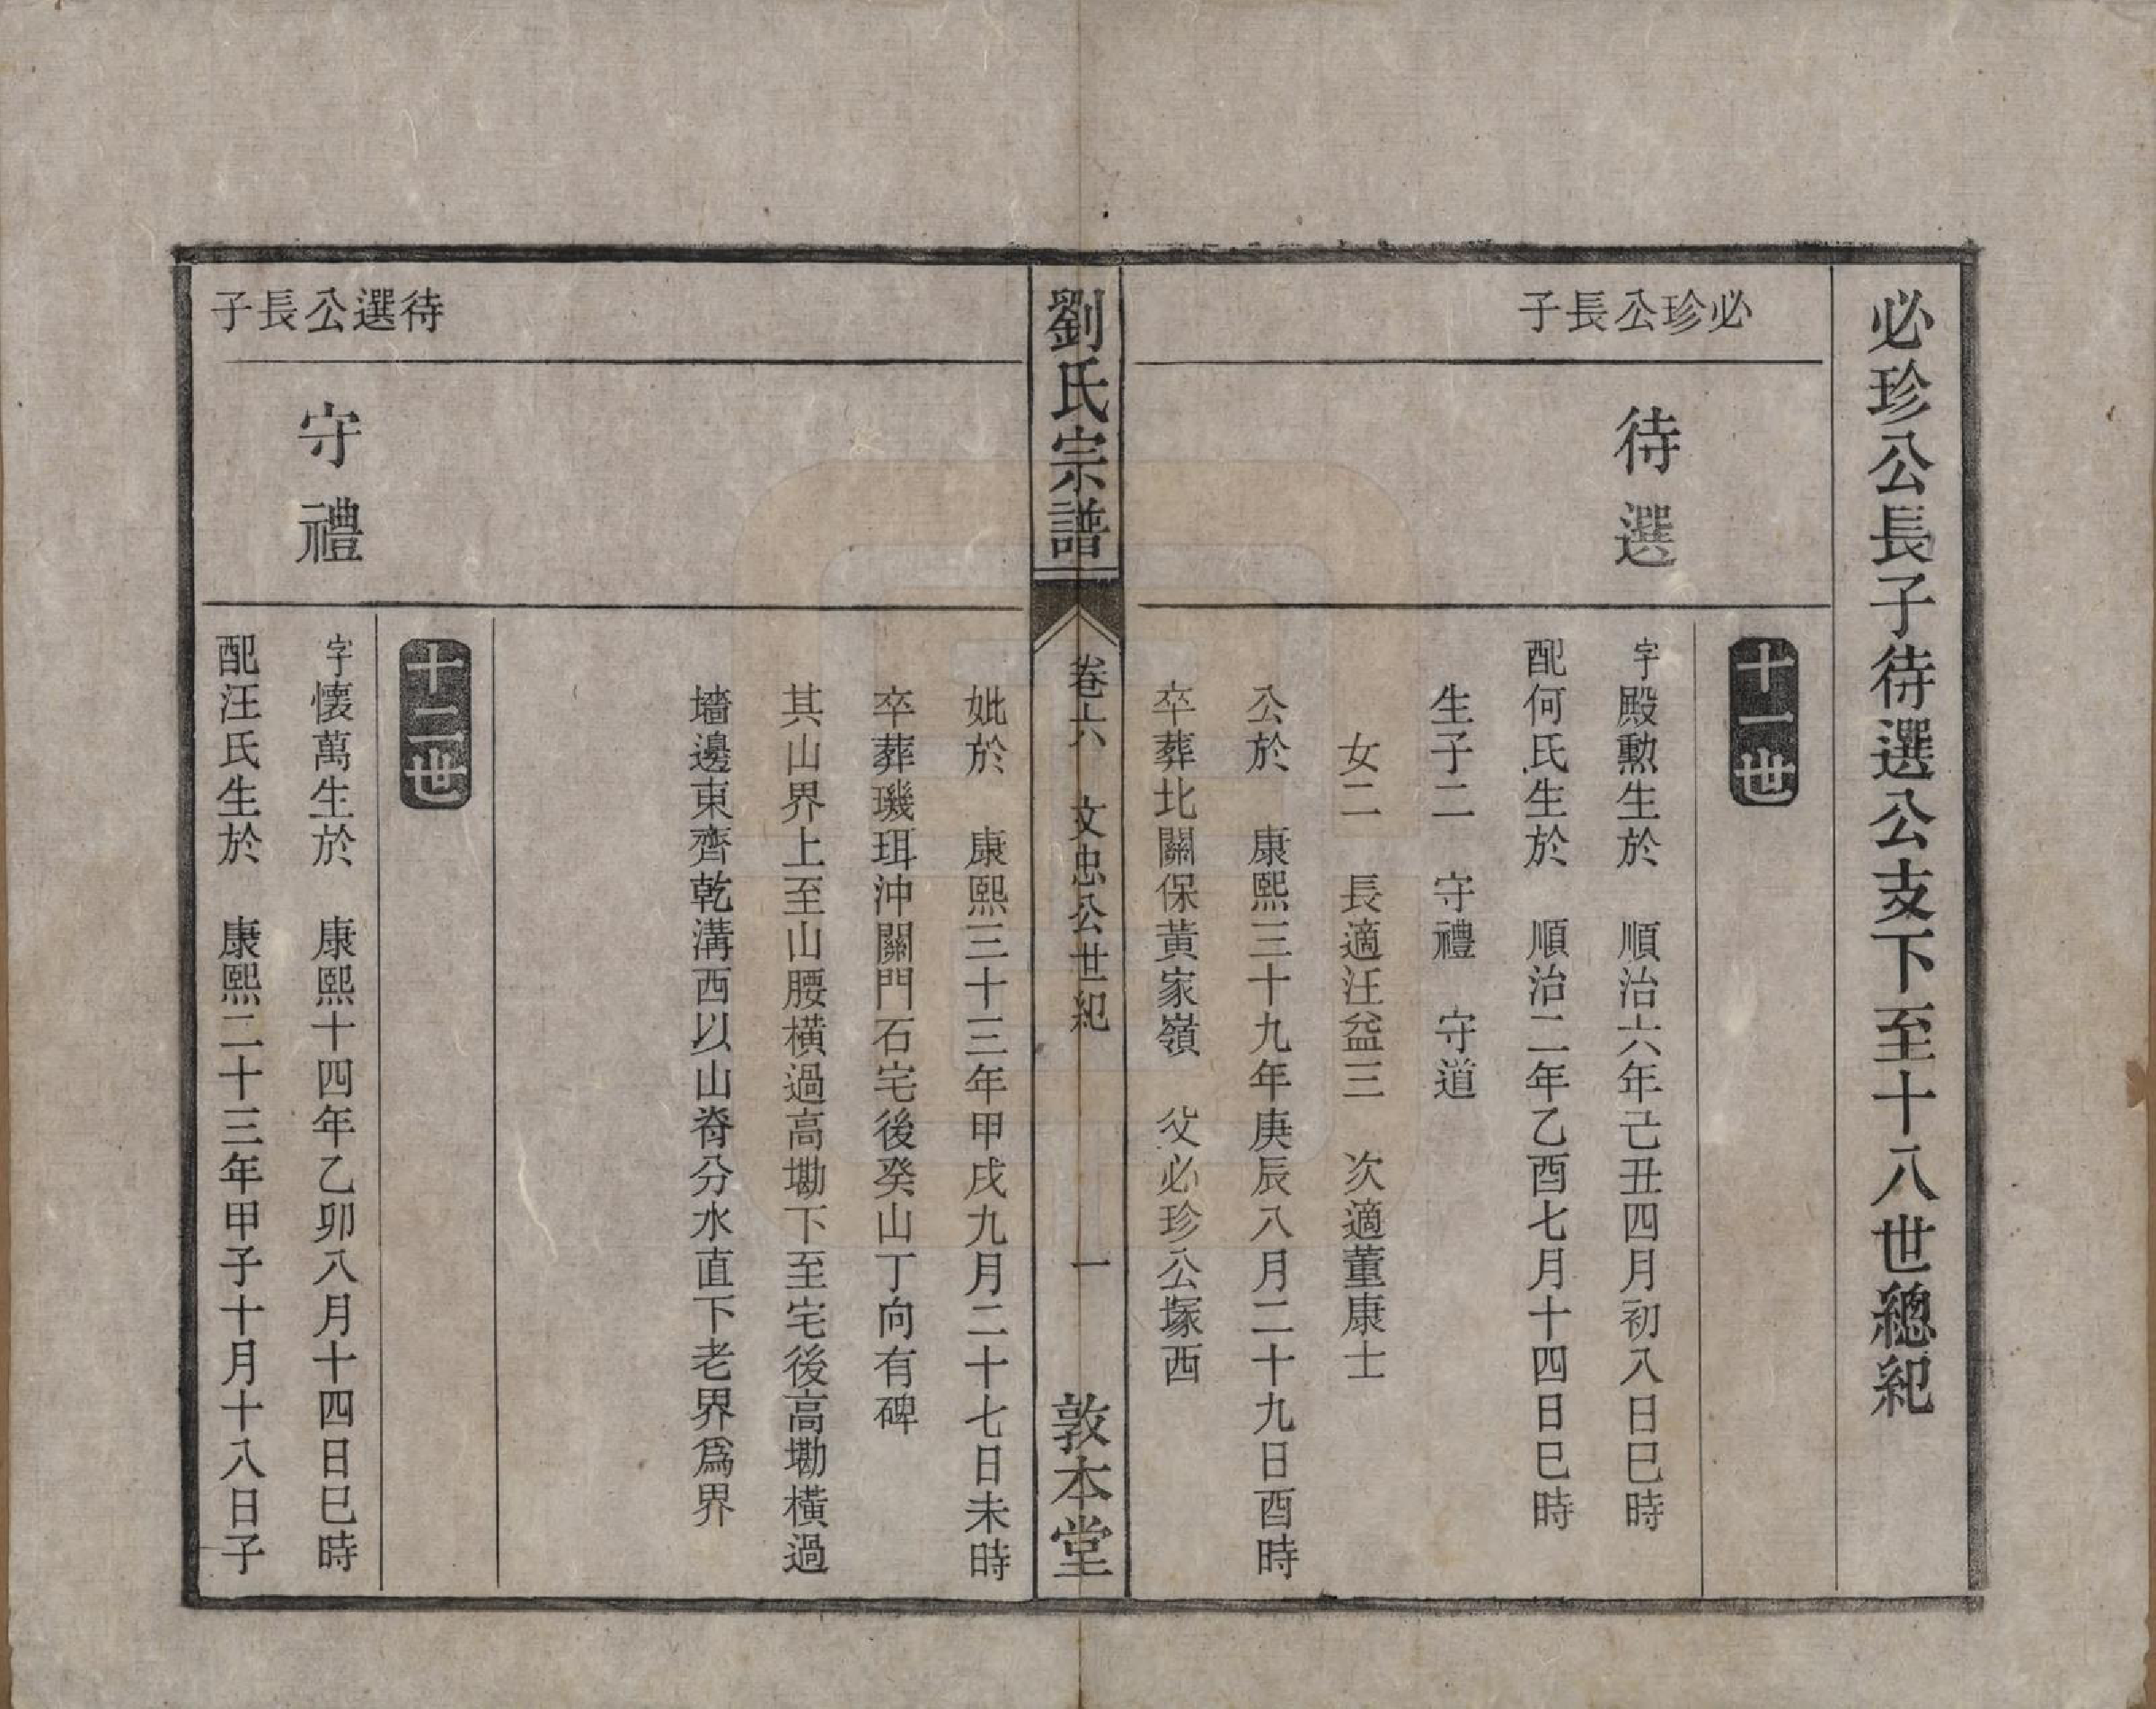 必珍公長子待選公支下至十八世總紀
十一世
必珍公長子
待選
字殿勳生於　順治六年己丑四月初八日巳時
配何氏生於　順治二年乙酉七月十四日巳時
生子二　守禮　守道
女二　長適汪益三　次適董康士
公於　康熙三十九年庚辰八月二十九日酉時
卒葬北關保黃家嶺　父必珍公塚西
劉氏宗譜
卷六　文忠公世紀　一
敦本堂
妣於　康熙三十三年甲戌九月二十七日未時
卒葬璣珥沖關門石宅後癸山丁向有碑
其山界上至山腰橫過高墈下至宅後高墈橫過
墻邊東齊乾溝西以山脊分水直下老界爲界
十二世
待選公長子
守禮
字懷萬生於　康熙十四年乙卯八月十四日巳時
配汪氏生於　康熙二十三年甲子十月十八日子